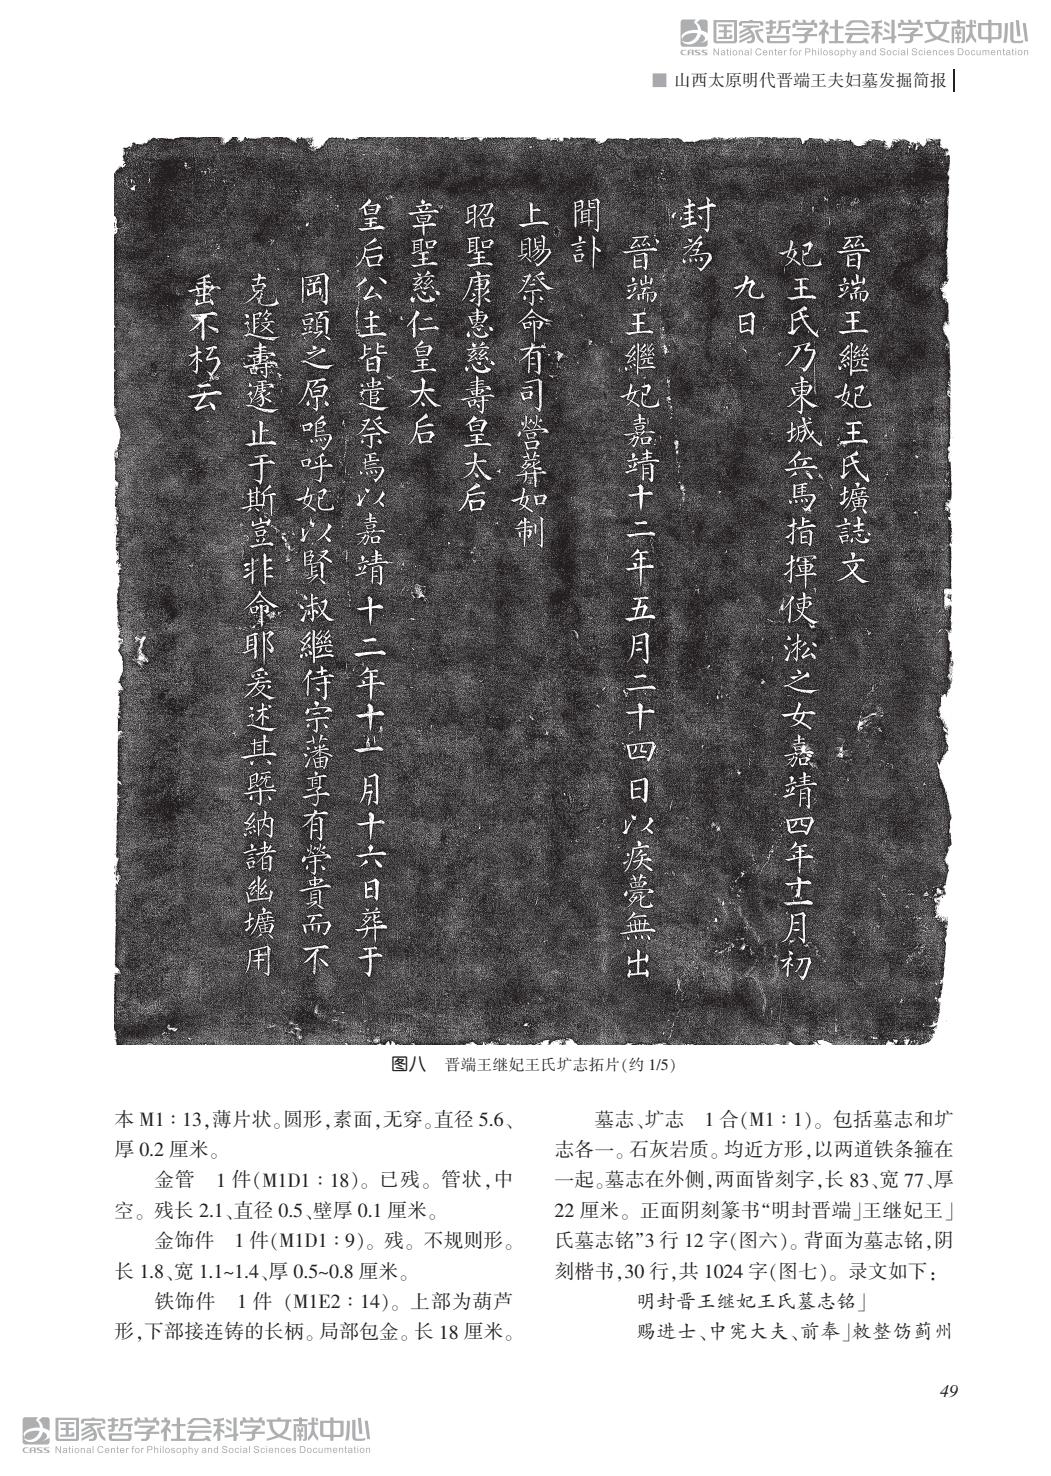 国家哲学社会科学文献中心
CASS National Center for Philosophy and Social Sciences Documentation
■ 山西太原明代晋端王夫妇墓发掘简报
晉端王繼妃王氏壙誌文
妃王氏乃東城兵馬指揮使淞之女嘉靖四年十一月初
九日
封為
晉端王繼妃嘉靖十二年五月二十四日以疾薨無出
聞訃
上賜祭命有司營葬如制
昭聖康惠慈壽皇太后
章聖慈仁皇太后
皇后公主皆遣祭焉以嘉靖十二年十一月十六日葬于
岡頭之原嗚呼妃以賢淑繼侍宗藩享有榮貴而不
克遐壽遽止于斯豈非命耶爰述其槩納諸幽壙用
垂不朽云
图八　晋端王继妃王氏圹志拓片(约 1/5)
本 M1∶13,薄片状。圆形,素面,无穿。直径 5.6、
厚 0.2 厘米。
金管　1 件(M1D1∶18)。已残。管状,中
空。残长 2.1、直径 0.5、壁厚 0.1 厘米。
金饰件　1 件(M1D1∶9)。残。不规则形。
长 1.8、宽 1.1~1.4、厚 0.5~0.8 厘米。
铁饰件　1 件 (M1E2∶14)。上部为葫芦
形,下部接连铸的长柄。局部包金。长 18 厘米。
墓志、圹志　1 合(M1∶1)。包括墓志和圹
志各一。石灰岩质。均近方形,以两道铁条箍在
一起。墓志在外侧,两面皆刻字,长 83、宽 77、厚
22 厘米。正面阴刻篆书“明封晋端」王继妃王」
氏墓志铭”3 行 12 字(图六)。背面为墓志铭,阴
刻楷书,30 行,共 1024 字(图七)。录文如下：
明封晋王继妃王氏墓志铭」
赐进士、中宪大夫、前奉」敕整饬蓟州
49
国家哲学社会科学文献中心
CASS National Center for Philosophy and Social Sciences Documentation